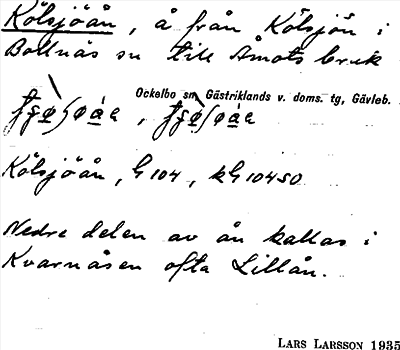 Kölsjöån, å från Kölsjön i
Bollnäs sn till Åmots bruk
Ockelbo sn, Gästriklands v. doms. tg, Gävleb.
Kölsjöån, G 104, kG 104 SO
Nedre delen av ån kallas i
Kvarnåsen ofta Lillån.
LARS LARSSON 1935